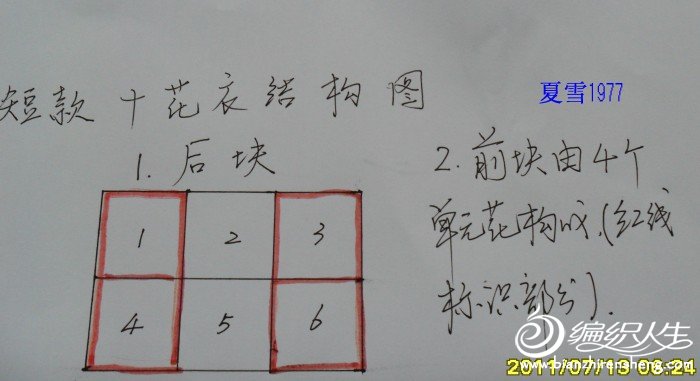 短款十花衣结构图
夏雪1977
1. 后块
1 2 3
4 5 6
2. 前块由4个
单元花构成.(红线
标识部分).
编织人生
www.bianzhirensheng.com
2011/07/13 06:24